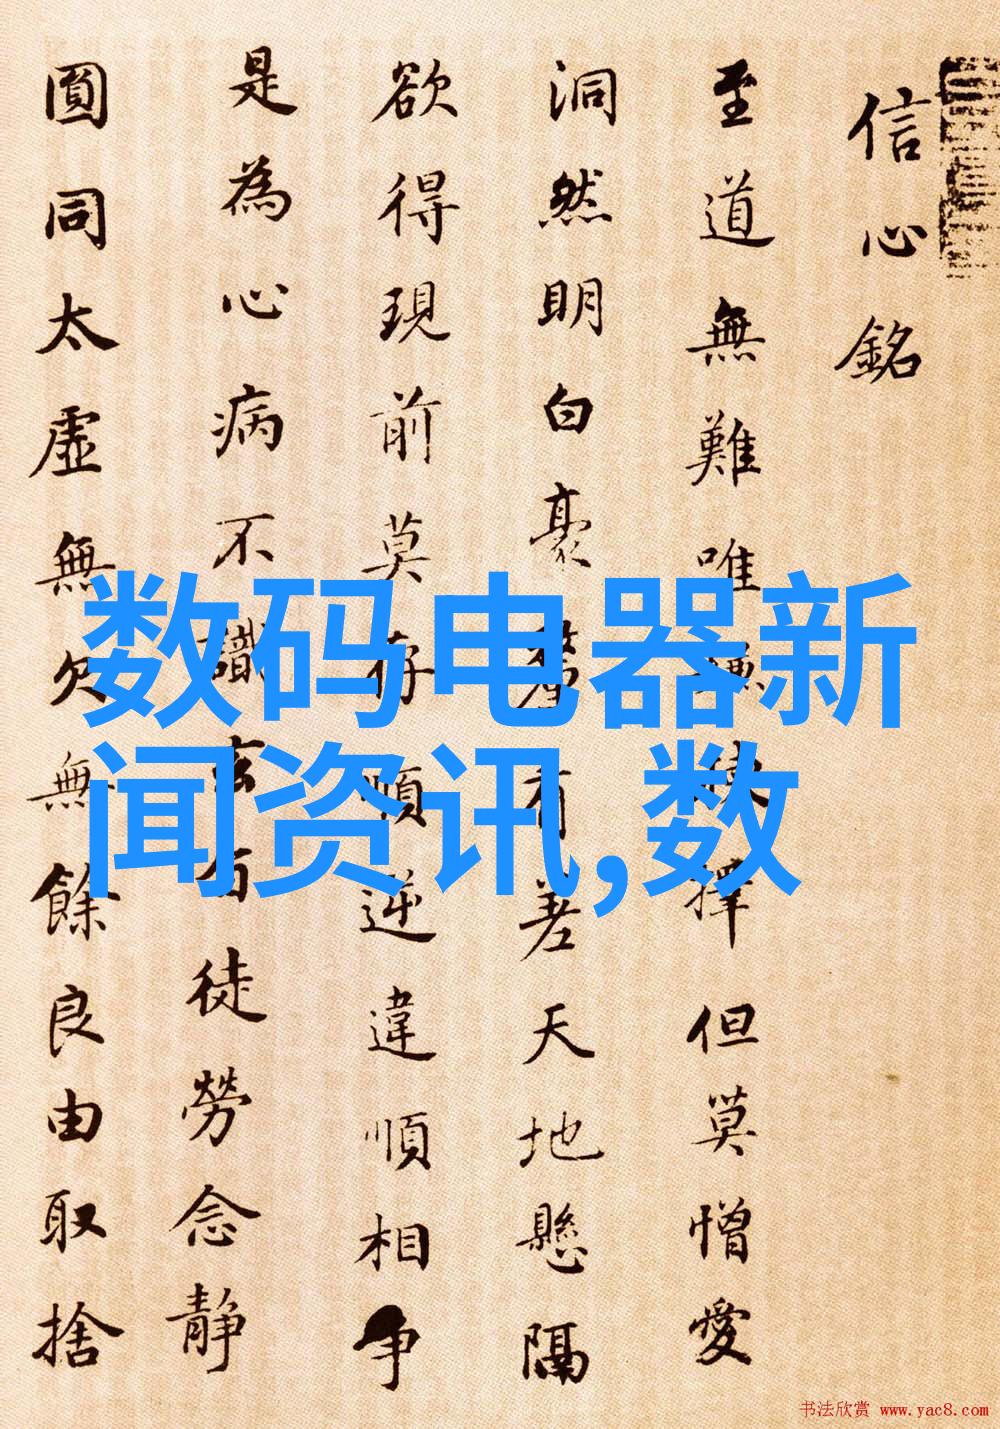 信心銘
至道無難唯嫌擇但莫憎愛
洞然明白豪釐有差天地懸隔
欲得現前莫存順逆違順相争
是為心病不識玄旨徒勞念静
圓同太虛無欠無餘良由取捨
数码电器新
闻资讯,数
书法欣赏 www.yac8.com